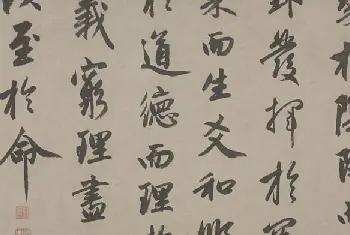 於陰陽而
卦發揮於剛
柔而生爻和順
於道德而理於
義窮理盡
以至於命